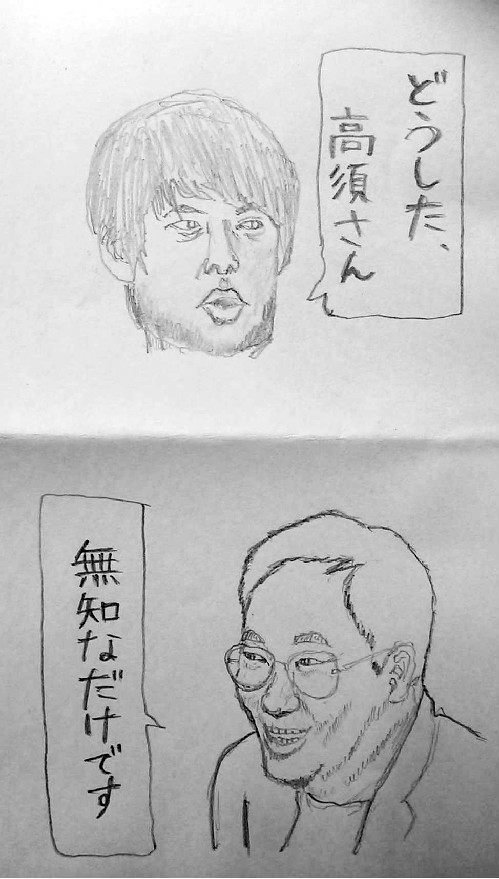 どうした、
高須さん
無知なだけです